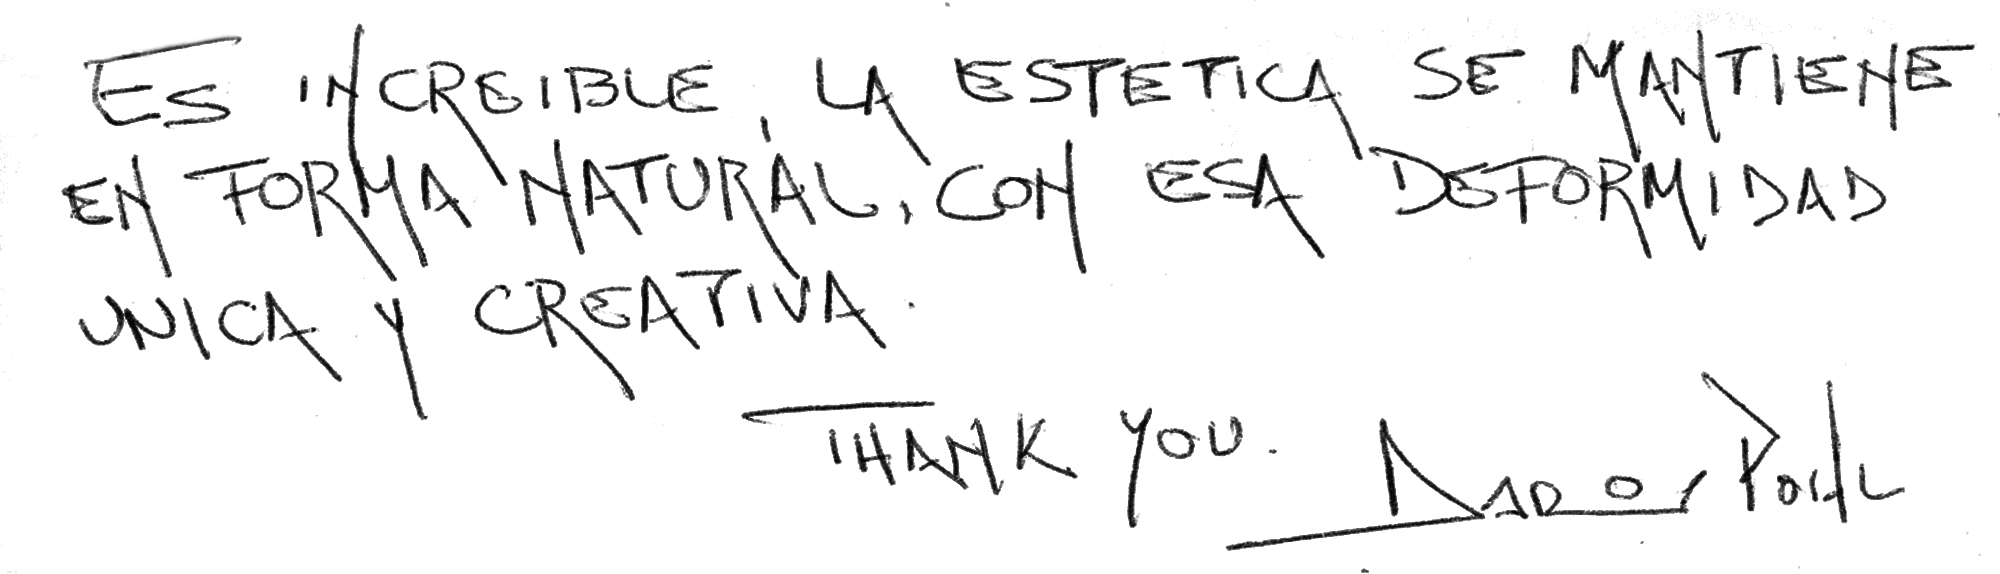 ES INCREIBLE, LA ESTETICA SE MANTIENE
EN FORMA NATURAL, CON ESA DEFORMIDAD
UNICA Y CREATIVA.
THANK YOU.